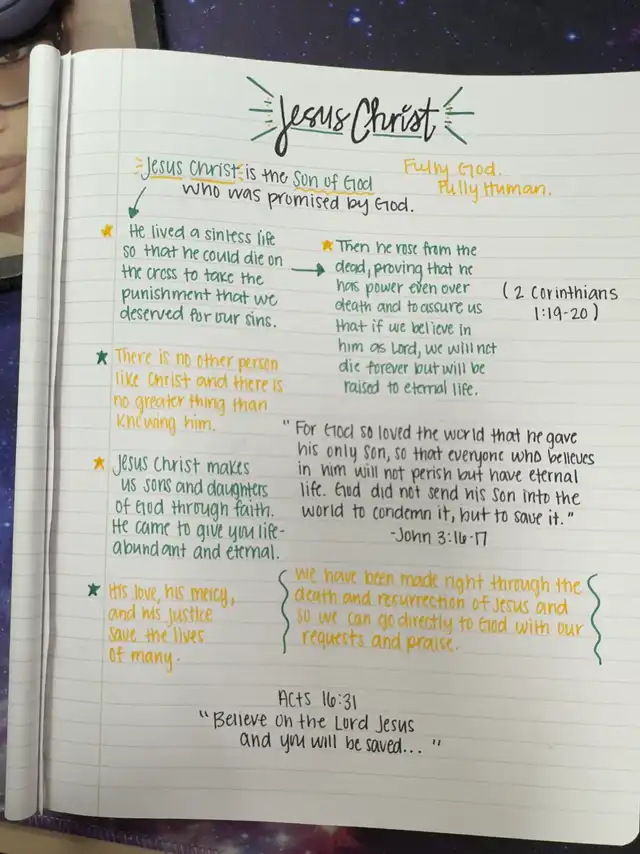 Jesus Christ
Jesus Christ is the Son of God
who was promised by God.
Fully God.
Fully Human.
He lived a sinless life
so that he could die on
the cross to take the
punishment that we
deserved for our sins.
Then he rose from the
dead, proving that he
has power even over
death and to assure us
that if we believe in
him as Lord, we will not
die forever but will be
raised to eternal life.
(2 Corinthians
1:19-20)
There is no other person
like Christ and there is
no greater thing than
knowing him.
"For God so loved the world that he gave
his only son, so that everyone who believes
in him will not perish but have eternal
life. God did not send his Son into the
world to condemn it, but to save it."
-John 3:16-17
Jesus Christ makes
us sons and daughters
of God through faith.
He came to give you life-
abundant and eternal.
His love, his mercy,
and his justice
save the lives
of many.
We have been made right through the
death and resurrection of Jesus and
so we can go directly to God with our
requests and praise.
Acts 16:31
"Believe on the Lord Jesus
and you will be saved... "